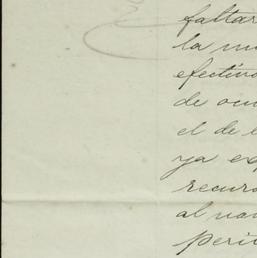 faltar
la mu
efectivo
de ocu
el de e
ya exp
recurs
al nom
peri